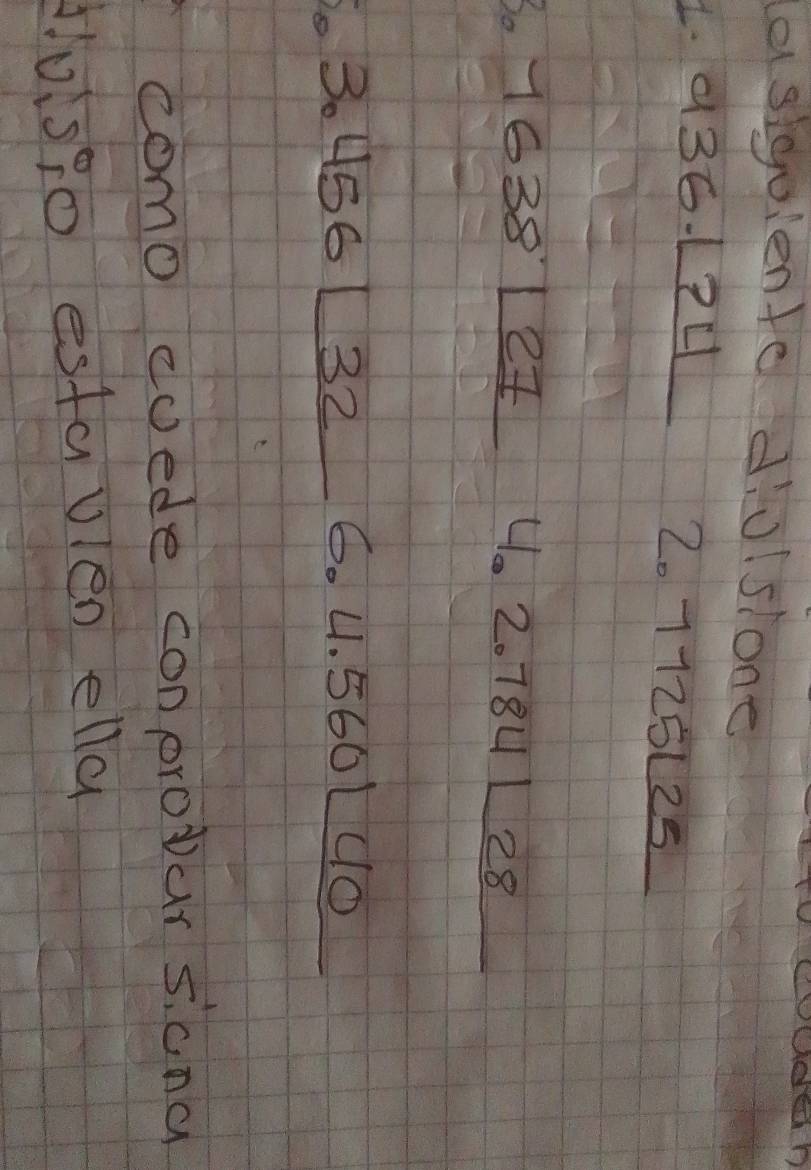 la siguiente divisione
1. 936. 24 2. 1125 25
3. 1638 27 4. 2.784 28
5. 3.456 32 6. 4.560 40
como cuede conprovar sicna
divisio esta vien ella